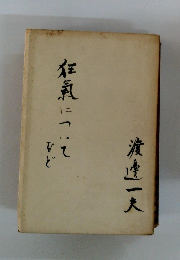 狂氣について
など
渡邊一夫